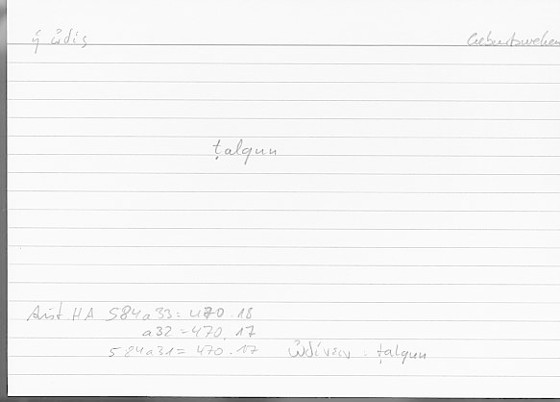 ἡ ὠδίς Geburtswehen
ṭalqun
Arist HA 584a33 : 470.18
a32 = 470.17
584a31 = 470.17 ὠδίνειν : ṭalqun